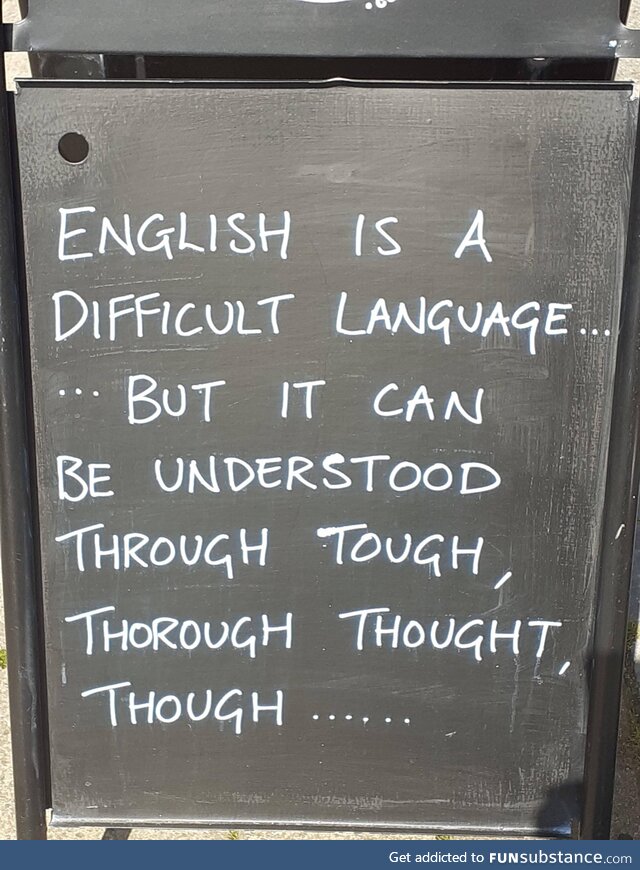 ENGLISH IS A
DIFFICULT LANGUAGE...
... BUT IT CAN
BE UNDERSTOOD
THROUGH TOUGH,
THOROUGH THOUGHT,
THOUGH ......
Get addicted to FUNsubstance.com